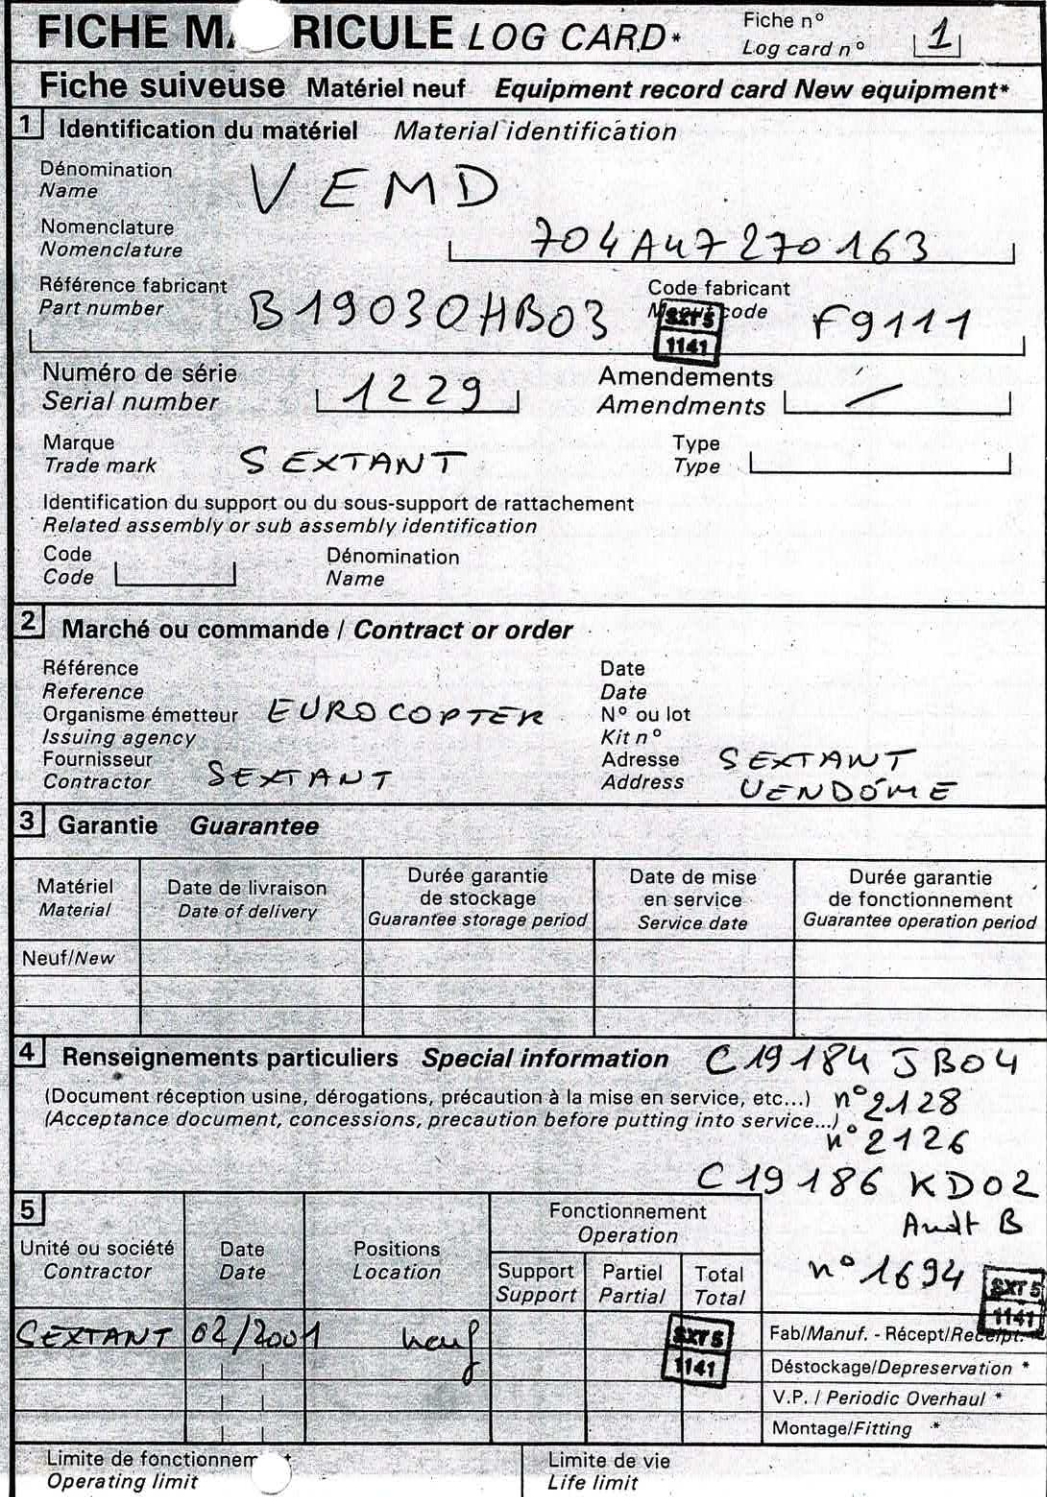 FICHE MA RICULE LOG CARD*
Fiche n°
Log card n°
1
Fiche suiveuse Matériel neuf Equipment record card New equipment*
1 Identification du matériel Material identification
Dénomination
Name
VEMD
Nomenclature
Nomenclature
704A47270163
Référence fabricant
Part number
B19030HB03
Code fabricant
code
F9111
SXT5
1141
Numéro de série
Serial number
1229
Amendements
Amendments
—
Marque
Trade mark
SEXTANT
Type
Type
Identification du support ou du sous-support de rattachement
Related assembly or sub assembly identification
Code
Code
Dénomination
Name
2 Marché ou commande / Contract or order
Référence
Reference
Date
Date
Organisme émetteur
Issuing agency
EUROCOPTER
N° ou lot
Kit n°
Fournisseur
Contractor
SEXTANT
Adresse
Address
SEXTANT
VENDÔME
3 Garantie Guarantee
Matériel
Material
Date de livraison
Date of delivery
Durée garantie
de stockage
Guarantee storage period
Date de mise
en service
Service date
Durée garantie
de fonctionnement
Guarantee operation period
Neuf/New
4 Renseignements particuliers Special information
C19184 JB04
(Document réception usine, dérogations, précaution à la mise en service, etc...)
n°2128
(Acceptance document, concessions, precaution before putting into service...)
n°2126
C19186 KD02
Amdt B
n°1694
SXT5
1141
5
Unité ou société
Contractor
Date
Date
Positions
Location
Fonctionnement
Operation
Support
Support
Partiel
Partial
Total
Total
SEXTANT 02/2001 neuf
SXT5
1141
Fab/Manuf. - Récept/Receipt.
Déstockage/Depreservation *
V.P. / Periodic Overhaul *
Montage/Fitting *
Limite de fonctionnem t
Operating limit
Limite de vie
Life limit